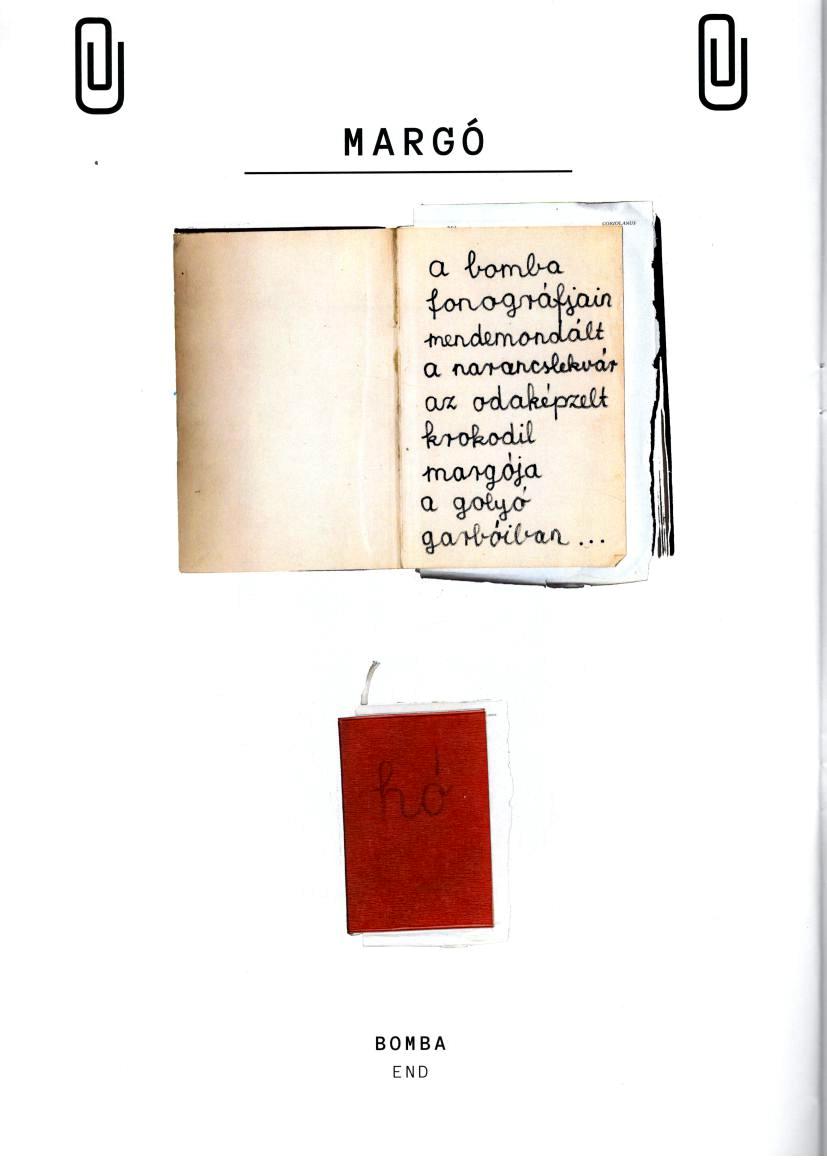 MARGÓ
CORIOLANUS
a bomba
fonográfjain
mendemondált
a narancslekvár
az odaképzelt
krokodil
margója
a golyó
garbóiban ...
hó
BOMBA
END